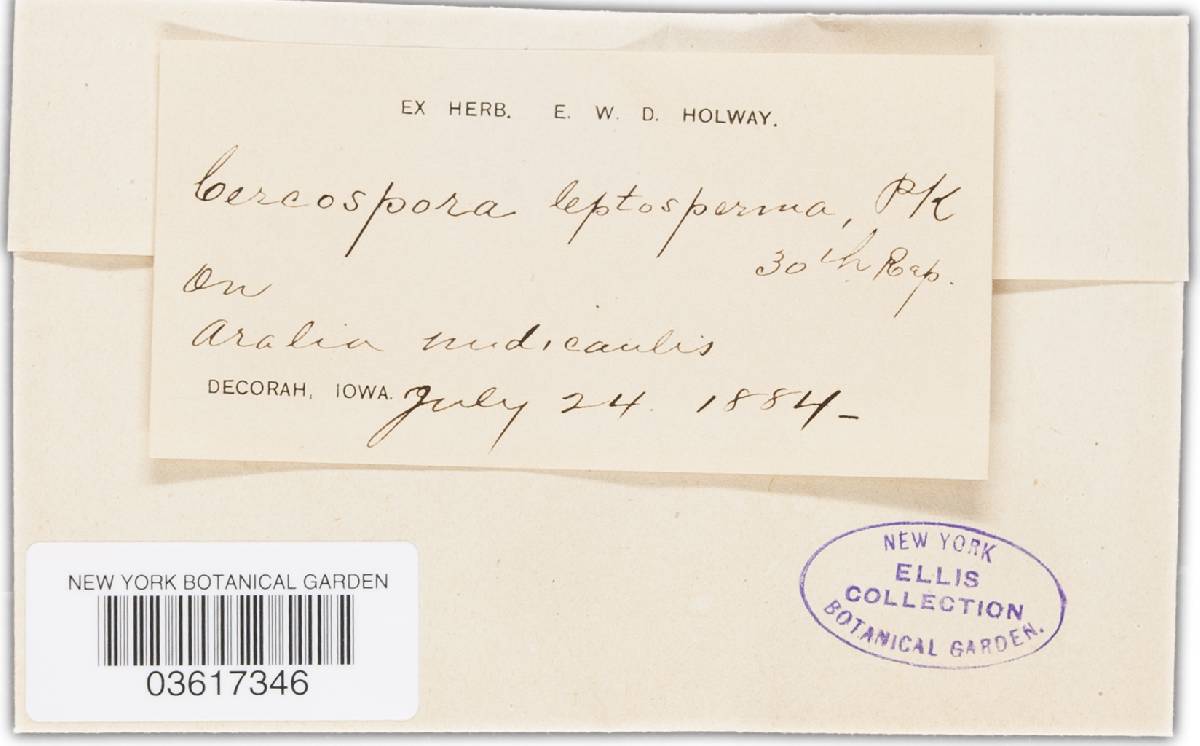 EX HERB. E. W. D. HOLWAY.
Cercospora leptosperma, PK
30th Rep.
On
Aralia nudicaulis
DECORAH, IOWA. July 24. 1884-
NEW YORK BOTANICAL GARDEN
03617346
NEW YORK
ELLIS
COLLECTION
BOTANICAL GARDEN.